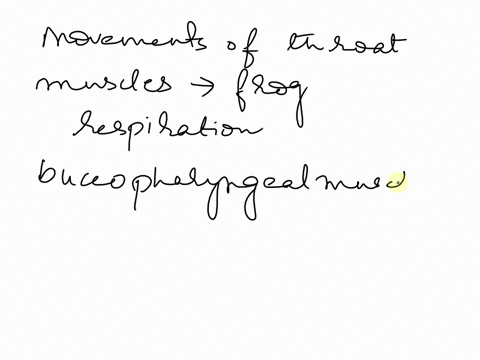 Movements of throat
muscles → frog
respiration
buccopharyngeal musc